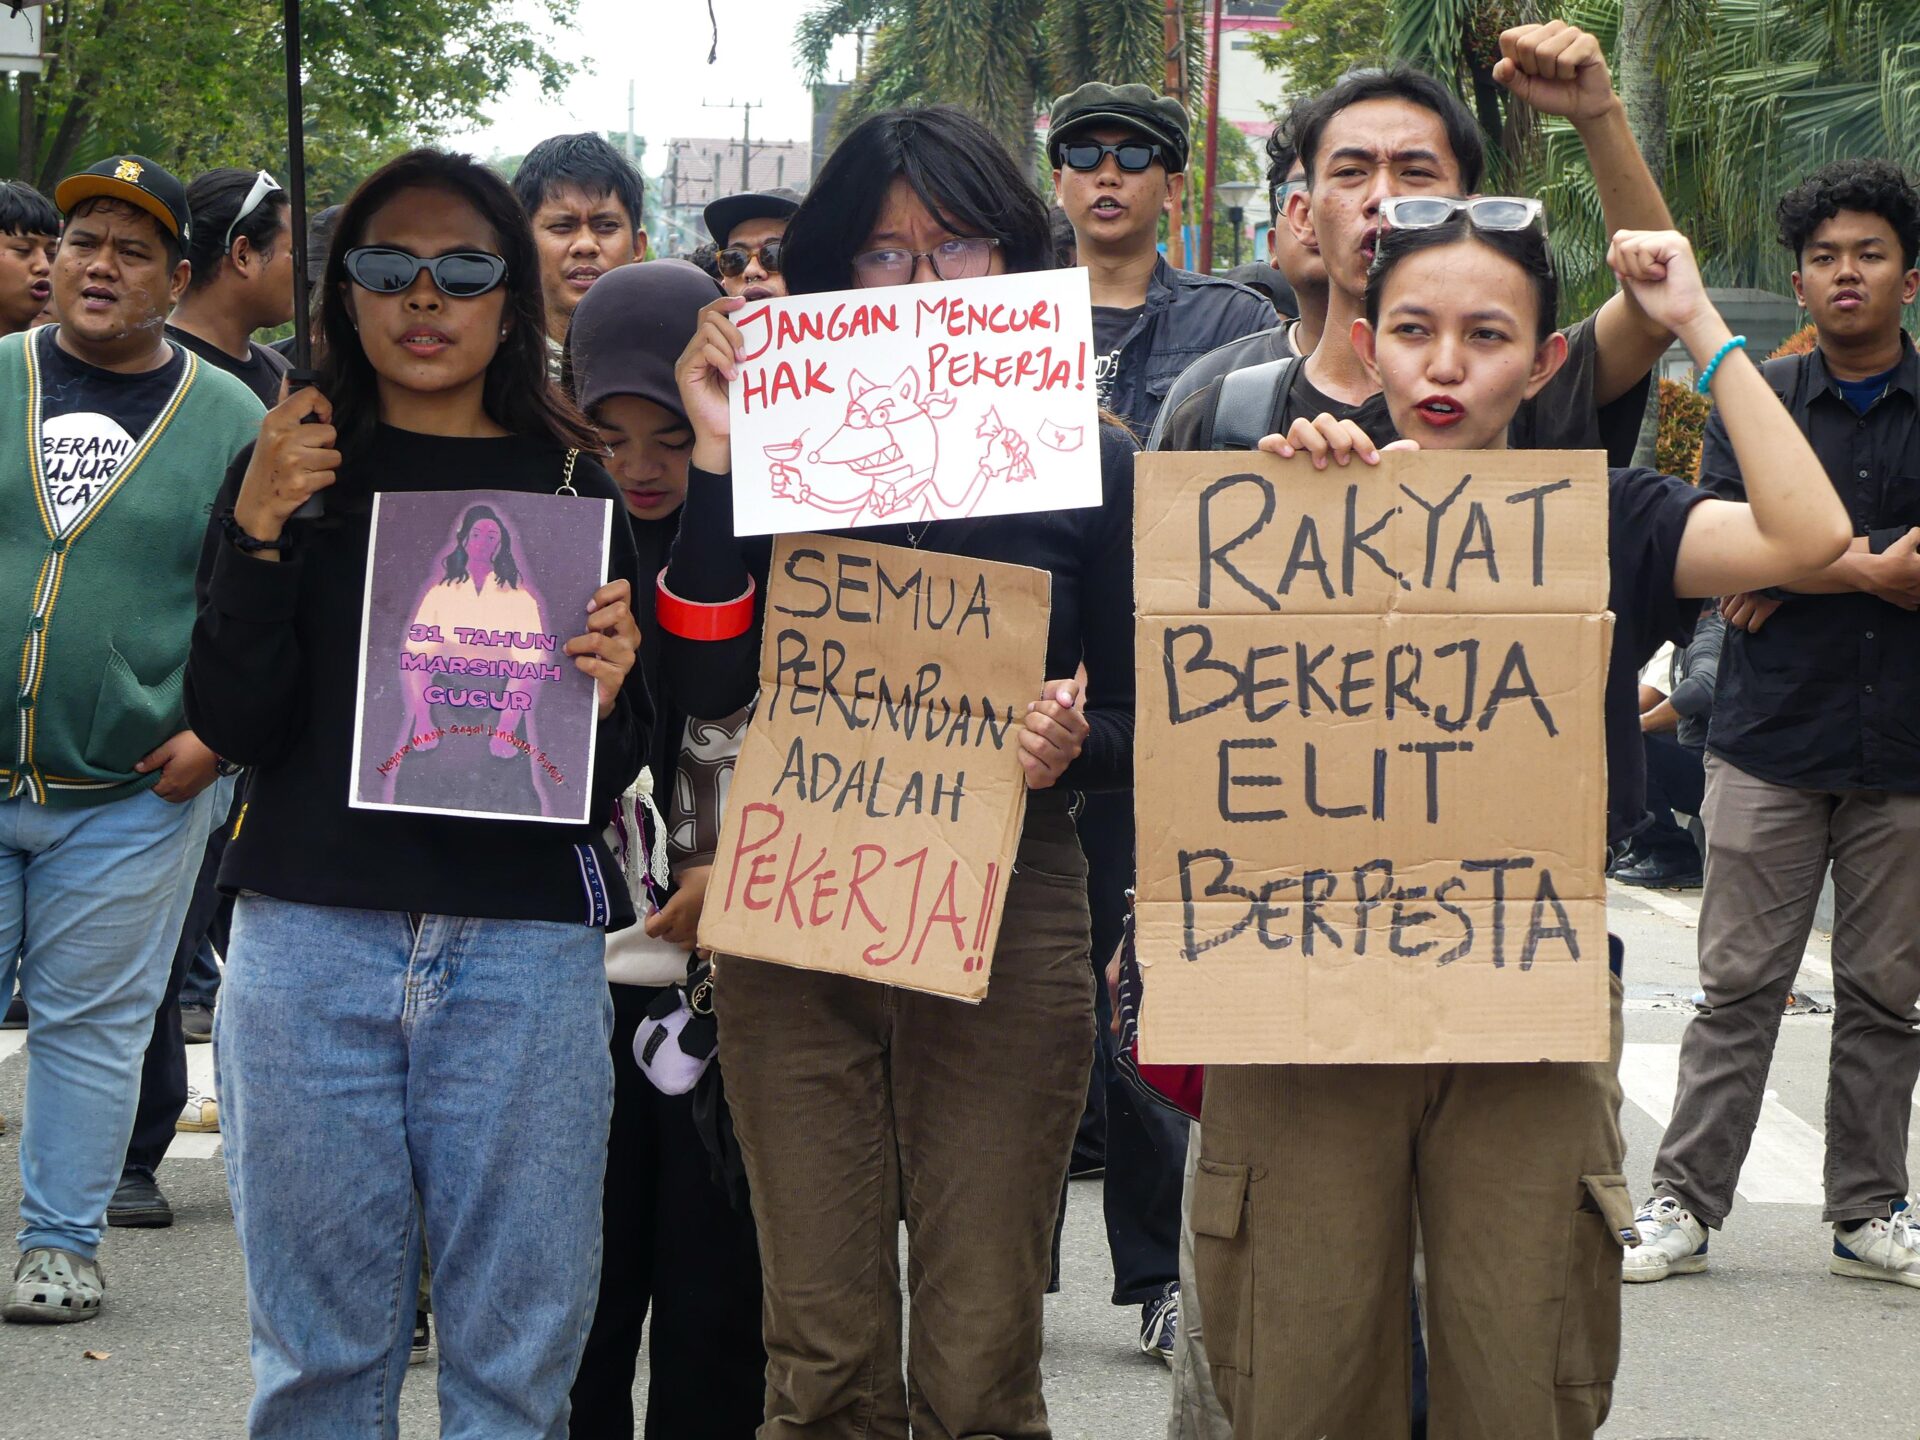 BERANI
JUJUR
PECAT
31 TAHUN
MARSINAH
GUGUR
Negara Masih Gagal Lindungi Buruh
JANGAN MENCURI
HAK PEKERJA!
SEMUA
PEREMPUAN
ADALAH
PEKERJA!!
RAKYAT
BEKERJA
ELIT
BERPESTA